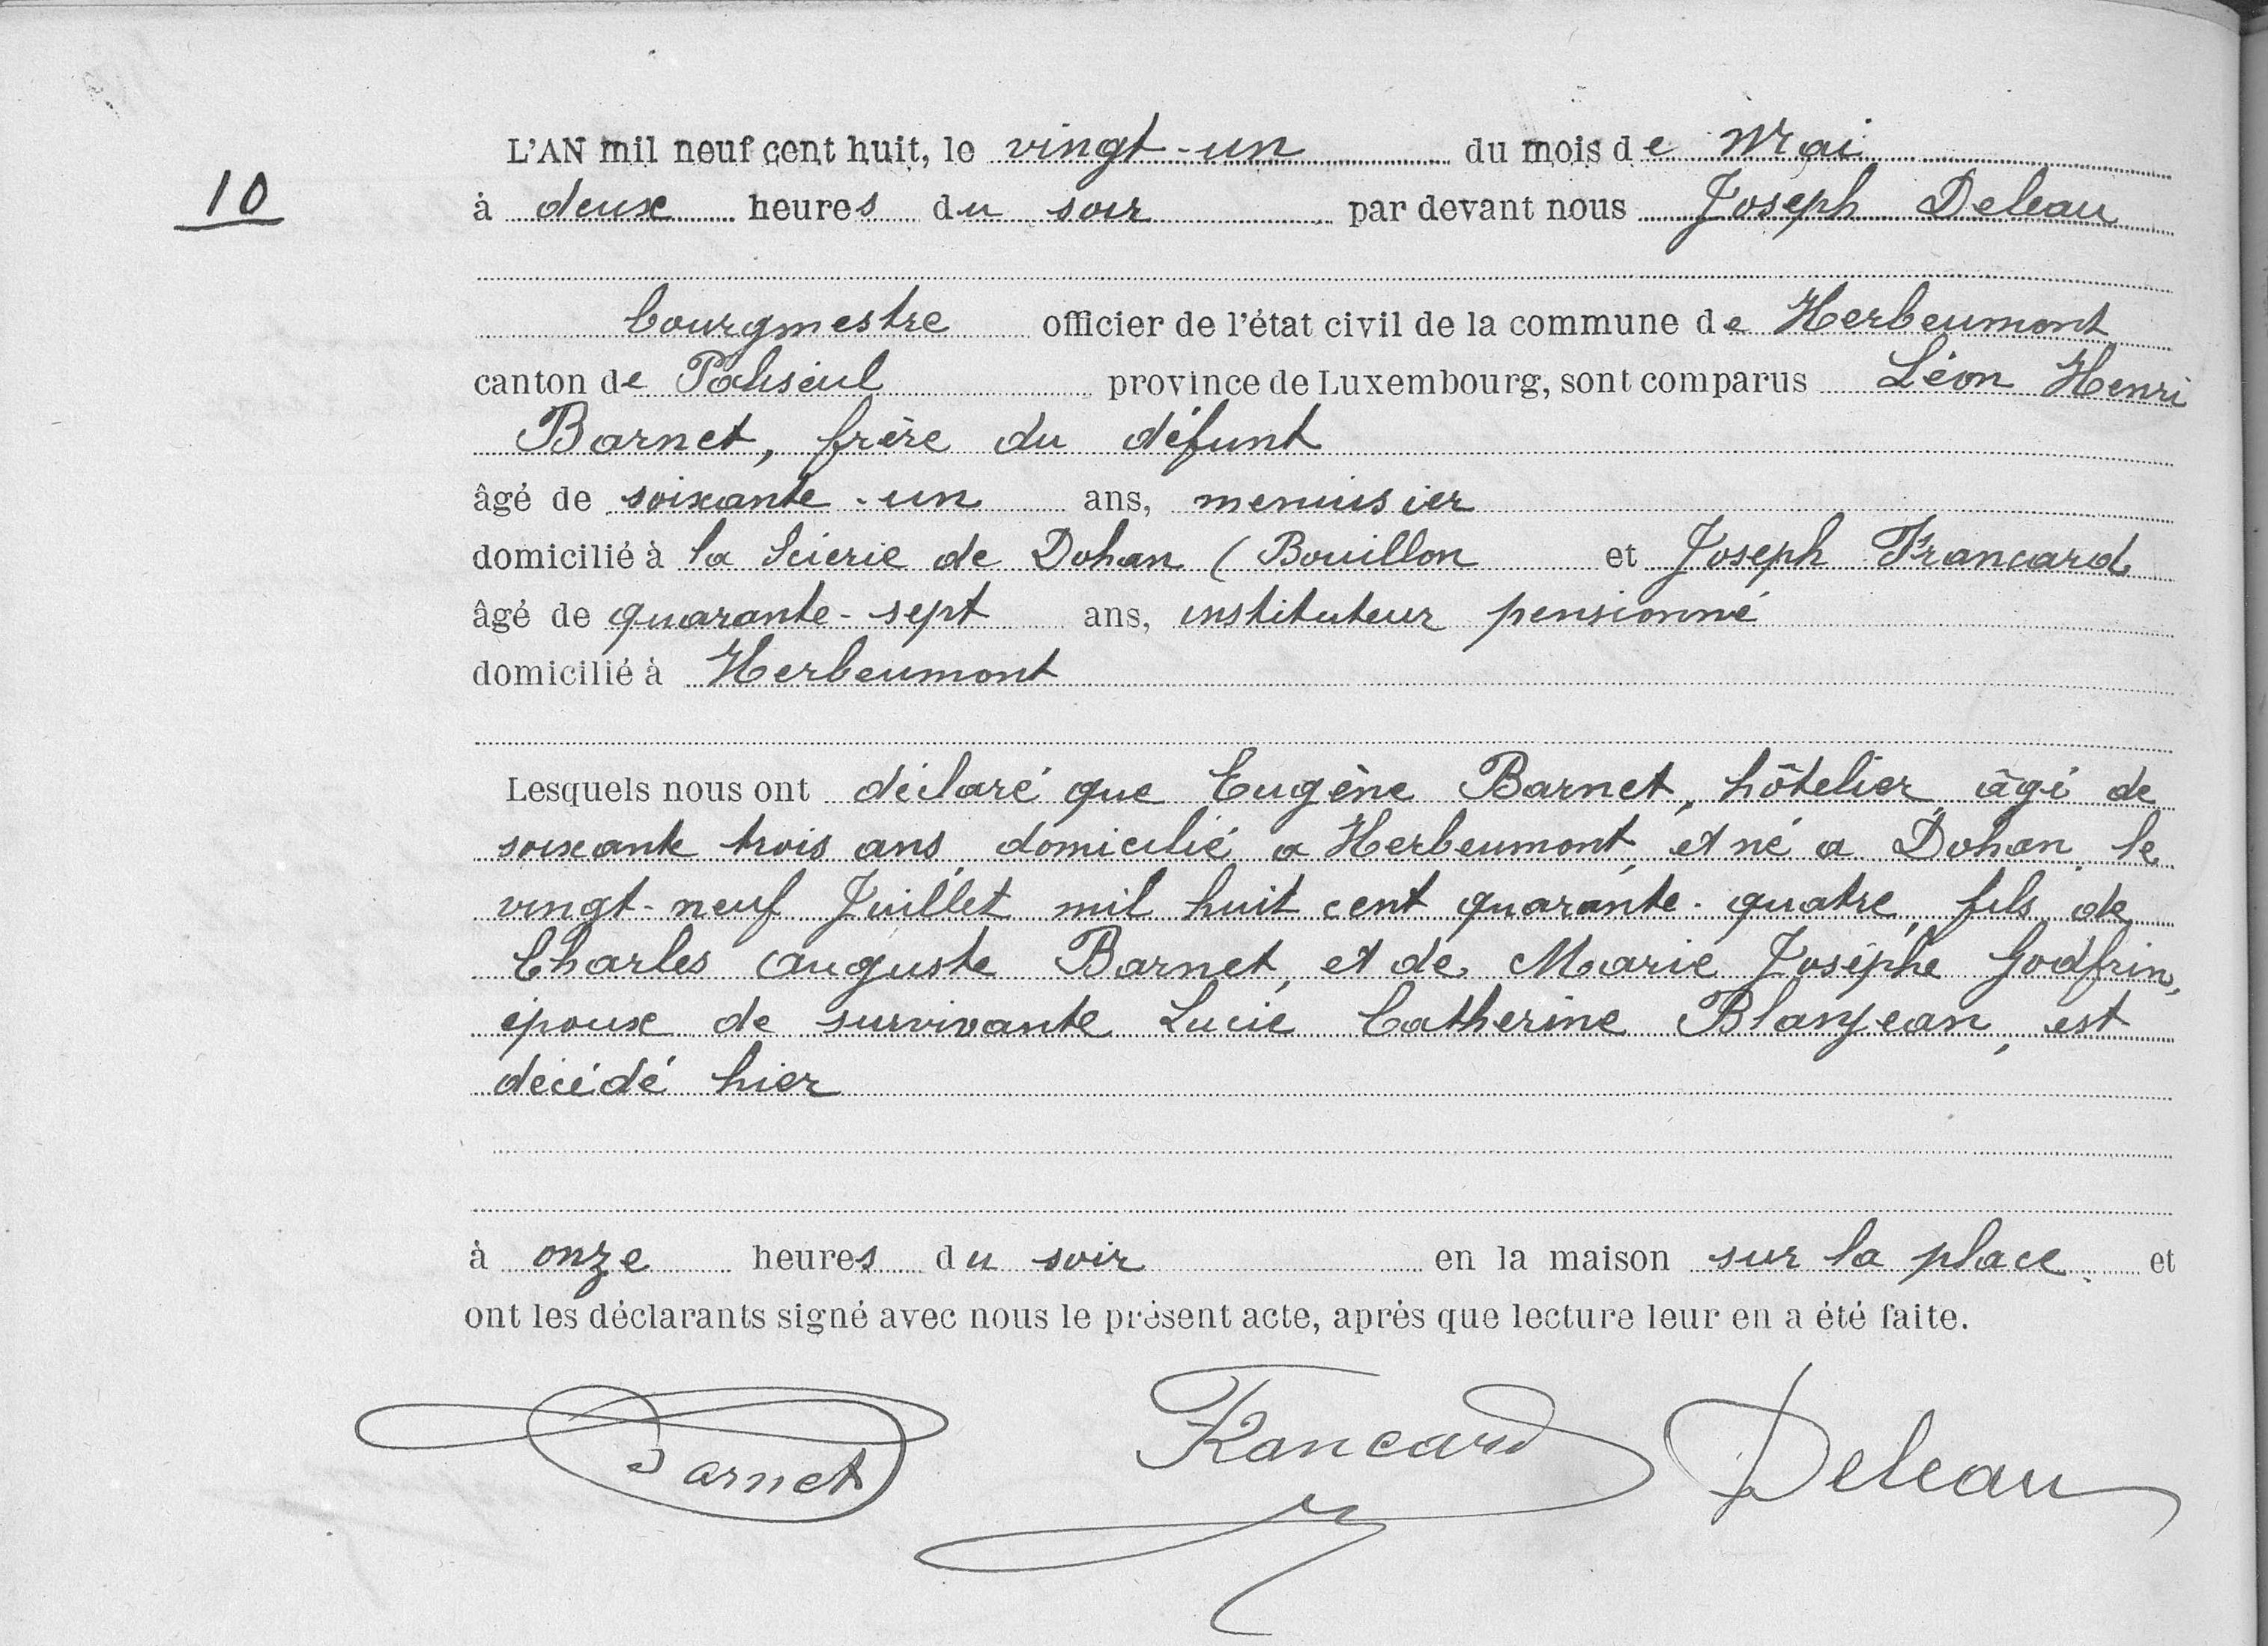 10
L'AN mil neuf cent huit, le vingt-un du mois de Mai
à deux heures du soir par devant nous Joseph Deleau
bourgmestre officier de l'état civil de la commune de Herbeumont
canton de Paliseul province de Luxembourg, sont comparus Léon Henri
Barnet, frère du défunt
âgé de soixante-un ans, menuisier
domicilié à la Scierie de Dohan (Bouillon et Joseph Francard
âgé de quarante-sept ans, instituteur pensionné
domicilié à Herbeumont
Lesquels nous ont déclaré que Eugène Barnet, hôtelier, âgé de
soixante trois ans, domicilié a Herbeumont, et né a Dohan, le
vingt-neuf Juillet mil huit cent quarante-quatre, fils de
Charles Auguste Barnet, et de Marie Joséphe Godfrin,
époux de survivante Lucie Catherine Blanjean, est
décédé hier
à onze heures du soir en la maison sur la place. et
ont les déclarants signé avec nous le présent acte, après que lecture leur en a été faite.
Barnet Francard Deleau